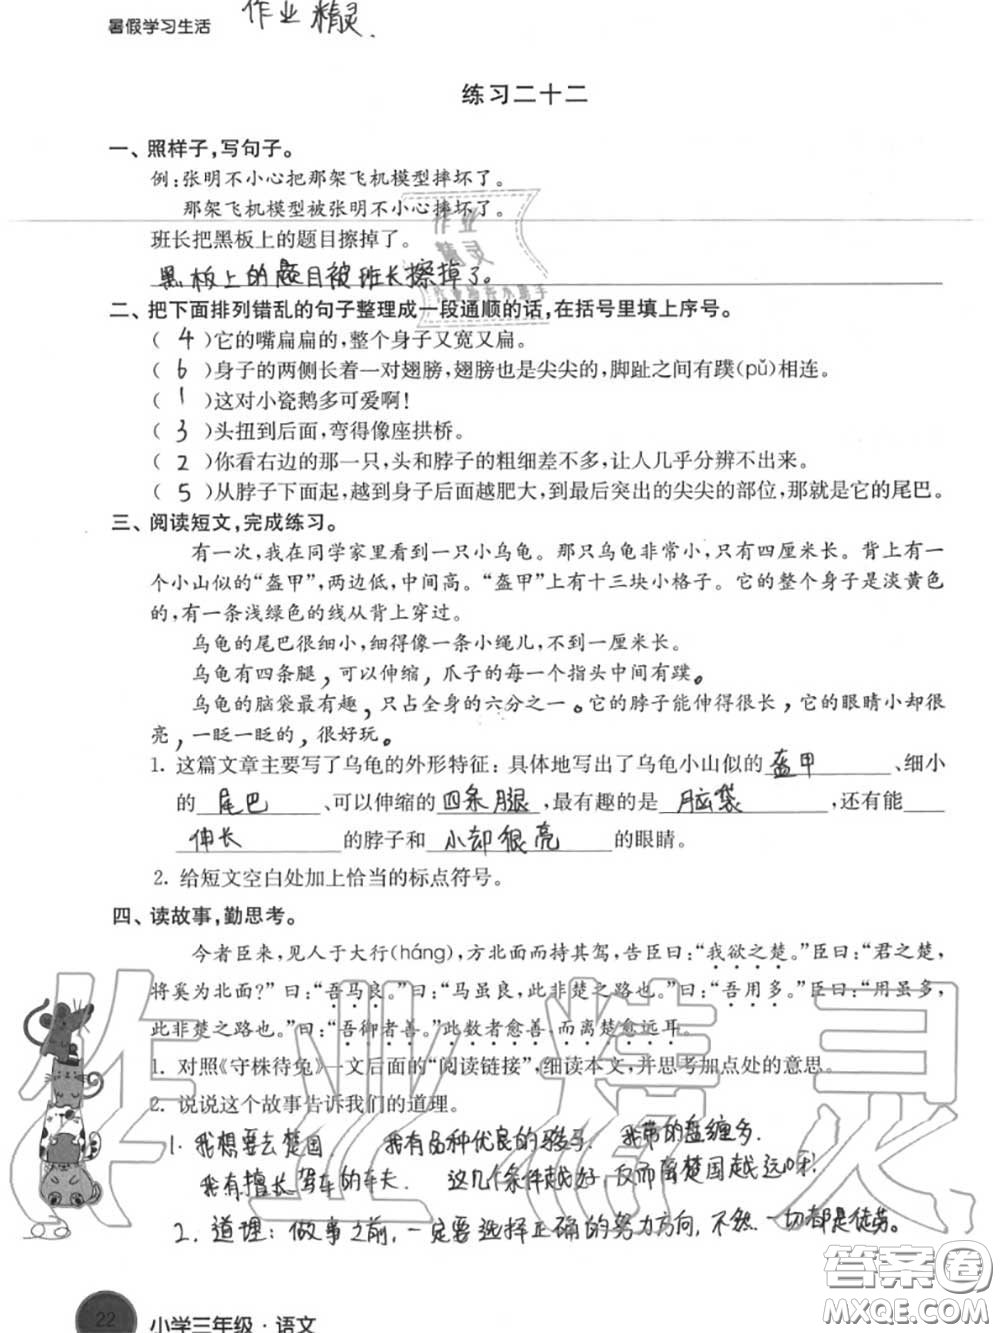 暑假学习生活
作业精灵.
练习二十二
一、照样子,写句子。
例:张明不小心把那架飞机模型摔坏了。
那架飞机模型被张明不小心摔坏了。
班长把黑板上的题目擦掉了。
黑板上的题目被班长擦掉了。
二、把下面排列错乱的句子整理成一段通顺的话,在括号里填上序号。
( 4 )它的嘴扁扁的,整个身子又宽又扁。
( 6 )身子的两侧长着一对翅膀,翅膀也是尖尖的,脚趾之间有蹼(pǔ)相连。
( 1 )这对小瓷鹅多可爱啊!
( 3 )头扭到后面,弯得像座拱桥。
( 2 )你看右边的那一只,头和脖子的粗细差不多,让人几乎分辨不出来。
( 5 )从脖子下面起,越到身子后面越肥大,到最后突出的尖尖的部位,那就是它的尾巴。
三、阅读短文,完成练习。
有一次,我在同学家里看到一只小乌龟。那只乌龟非常小,只有四厘米长。背上有一
个小山似的“盔甲”,两边低,中间高。“盔甲”上有十三块小格子。它的整个身子是淡黄色
的,有一条浅绿色的线从背上穿过。
乌龟的尾巴很细小,细得像一条小绳儿,不到一厘米长。
乌龟有四条腿,可以伸缩,爪子的每一个指头中间有蹼。
乌龟的脑袋最有趣,只占全身的六分之一。它的脖子能伸得很长,它的眼睛小却很
亮,一眨一眨的,很好玩。
1. 这篇文章主要写了乌龟的外形特征:具体地写出了乌龟小山似的 盔甲 、细小
的 尾巴 、可以伸缩的 四条腿 ,最有趣的是 脑袋 ,还有能
伸长 的脖子和 小却很亮 的眼睛。
2. 给短文空白处加上恰当的标点符号。
四、读故事,勤思考。
今者臣来,见人于大行(háng),方北面而持其驾,告臣曰:“我欲之楚。”臣曰:“君之楚,
将奚为北面?”曰:“吾马良。”曰:“马虽良,此非楚之路也。”曰:“吾用多。”臣曰:“用虽多,
此非楚之路也。”曰:“吾御者善。”此数者愈善,而离楚愈远耳。
1. 对照《守株待兔》一文后面的“阅读链接”,细读本文,并思考加点处的意思。
2. 说说这个故事告诉我们的道理。
1. 我想要去楚国 我有品种优良的骏马. 我带的盘缠多.
我有擅长驾车的车夫. 这几个条件越好,反而离楚国越远呀!
2. 道理:做事之前,一定要选择正确的努力方向,不然一切都是徒劳。
22
小学三年级·语文
作业精灵
答案圈
MXQE.COM